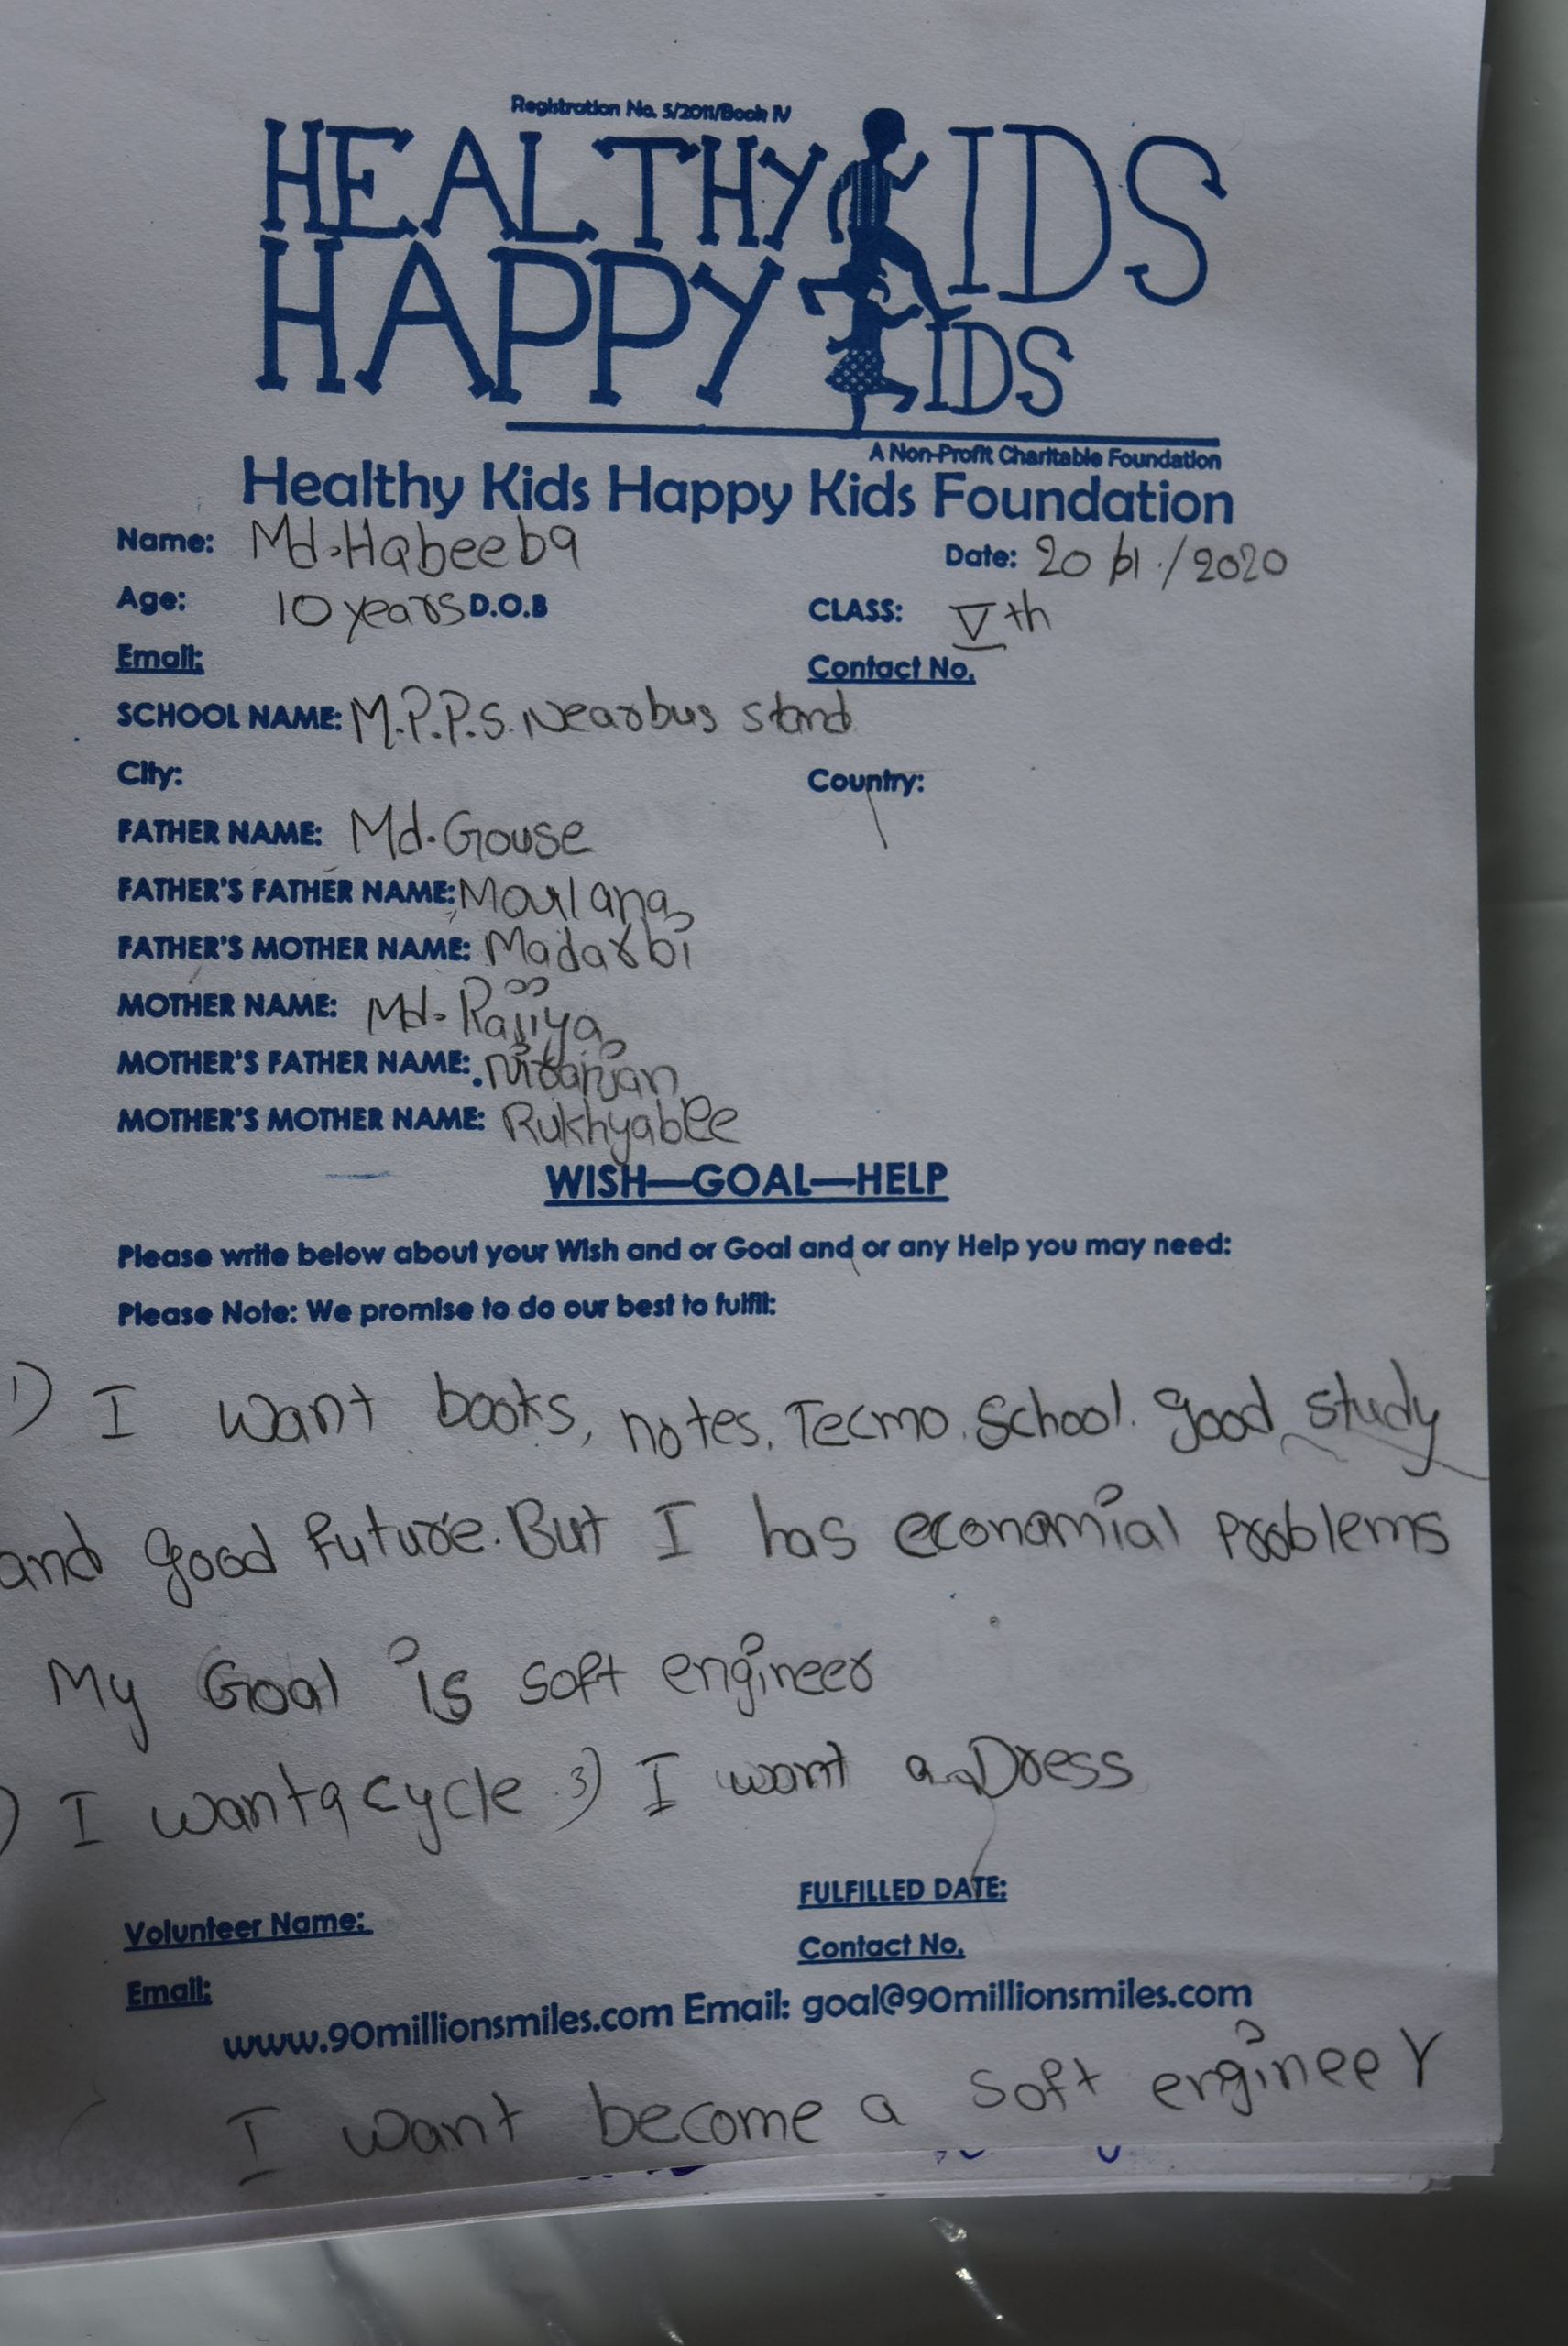 Registration No. 5/2011/Book IV
HEALTHY KIDS
HAPPY KIDS
A Non-Profit Charitable Foundation
Healthy Kids Happy Kids Foundation
Name: Md. Habeeba Date: 20/01/2020
Age: 10 years D.O.B CLASS: Vth
Email: Contact No.
SCHOOL NAME: M.P.P.S. Nearbus stand
City: Country:
FATHER NAME: Md. Gouse
FATHER'S FATHER NAME: Moulana
FATHER'S MOTHER NAME: Madarbi
MOTHER NAME: Md. Rajiya
MOTHER'S FATHER NAME:
MOTHER'S MOTHER NAME: Rukhyabee
WISH—GOAL—HELP
Please write below about your Wish and or Goal and or any Help you may need:
Please Note: We promise to do our best to fulfil:
1) I want books, notes, Tecmo School. good study
and good future. But I has economial problems
My Goal is soft engineer
) I want a cycle 3) I want a Dress
FULFILLED DATE:
Volunteer Name:
Contact No.
Email:
www.90millionsmiles.com Email: goal@90millionsmiles.com
I want become a soft engineer